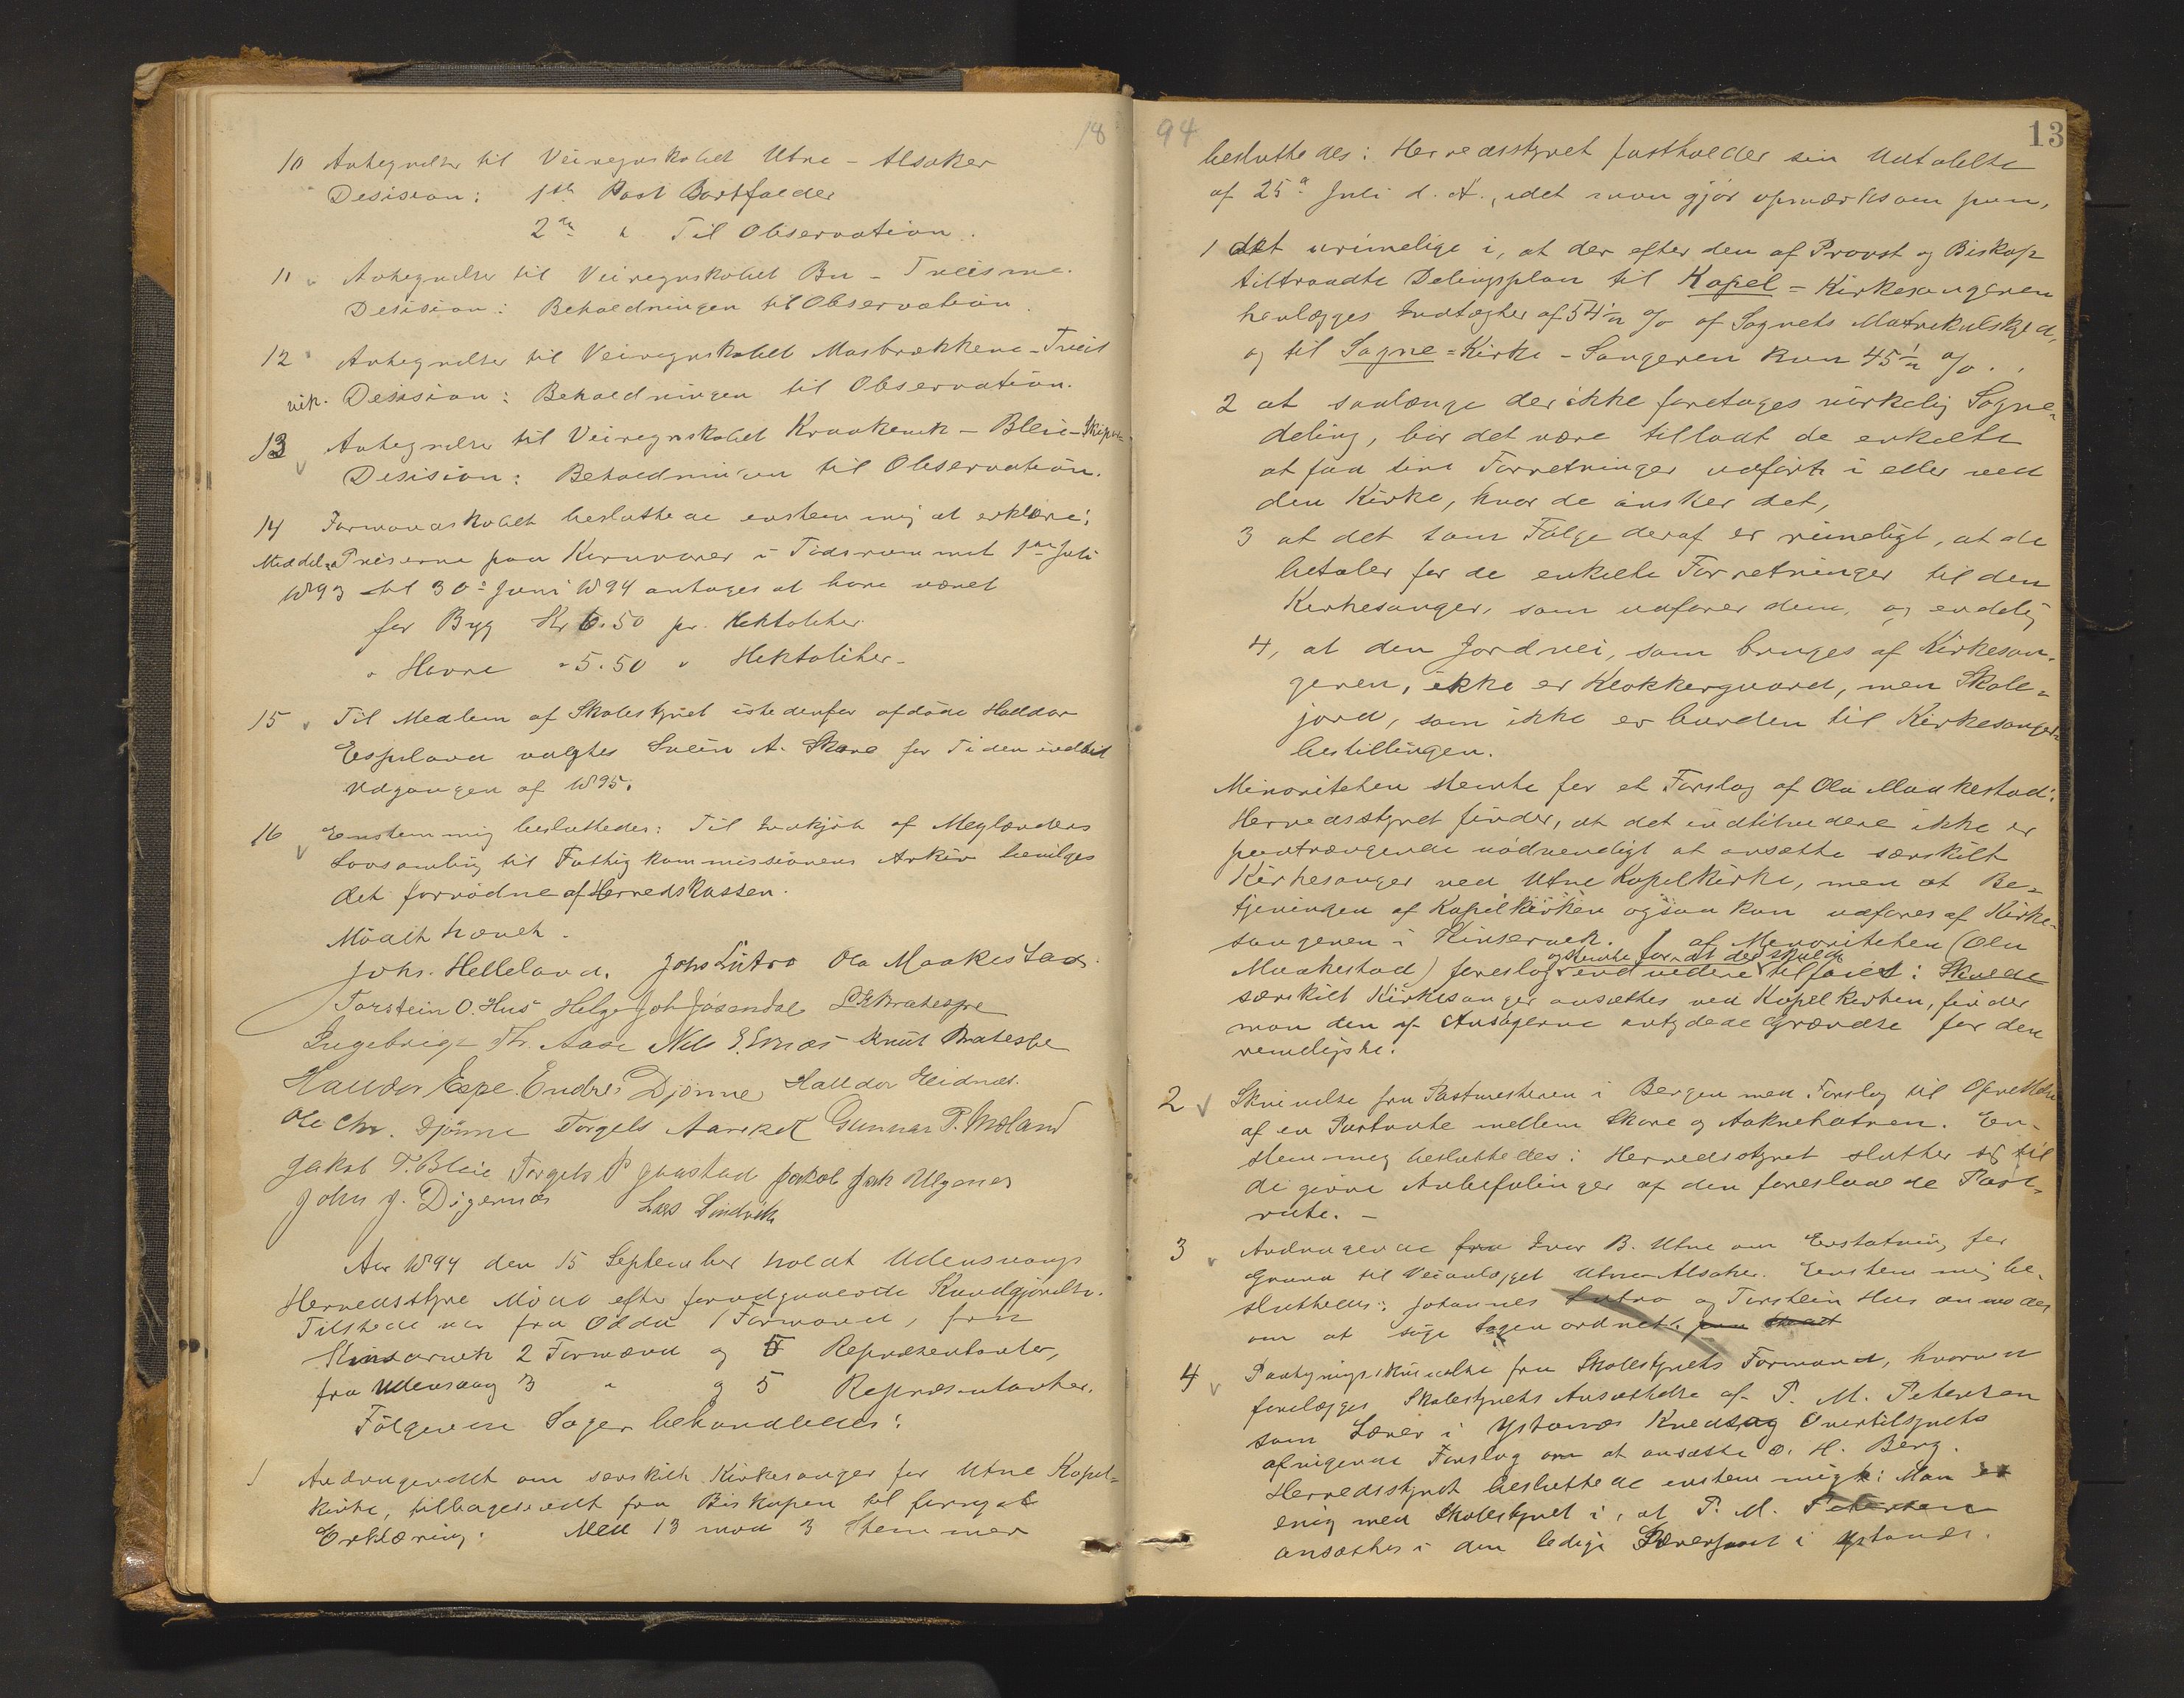 18
10 Antegnelser til Veiregnskabet Utne - Alsaker
Desision: 1ste Post Bortfalder
2den " Til Observation.
11 Antegnelser til Veiregnskabet Bu - Tveisme.
Desision: Beholdningen til Observation.
12 Antegnelser til Veiregnskabet Masbrækkene - Tveit
vik. Desision: Beholdningen til Observation.
13 Antegnelser til Veiregnskabet Kraakevik - Bleie - Skipe
Desision: Beholdningen til Observation.
14 Formandskabet besluttede enstemmig at erklære:
Meddelt Priserne paa Kornvarer i Tidsrummet 1ste Juli
1893 til 30te Juni 1894 antages at have været
for Byg Kr 6.50 pr. Hektoliter
" Havre " 5.50 " Hektoliter -
15 Til Medlem af Skolestyret istedenfor afdöde Haldor
Espeland valgtes Svein A. Skare for Tiden indtil
Udgangen af 1895.
16 Enstemmig besluttedes: Til Indkjöb af Meglænders
Lovsamling til Fattigkommissionens Arkiv bevilges
det fornödne af Herredskassen.
Mödet hævet.
Johs. Helleland. Johs Lutro Ola Maakestad.
Torstein O. Hus Helge Joh Jösendal L K Bratespe
Ingebrigt Th. Aase Nels E. Ernæs Knut Bratespe
Halldor Espe. Endre Djönne Halldor Eidnæs.
Ole Chr. Djönne Torgels Aarekol Gunnar P. Mæland
Jakob T. Bleie Torgels P Jaastad Jakob Jak Ulgenes
John J. Digernæs Lars Lindvik
Aar 1894 den 15 September holdt Udensvangs
Herredsstyre Möde efter forudgaaende Kundgjörelse.
Tilstede var fra Odda 1 Formand, fra
Kinsarvik 2 Formænd og 5 Repræsentanter,
fra Udensvang 3 " og 5 Repræsentanter.
Fölgende Sager behandledes:
1 Andragendet om særskilt Kirkesanger for Utne Kapel-
kirke, tilbagesendt fra Biskopen til fornyet
Erklæring. Med 13 mod 3 Stemmer
94
13
besluttedes: Herredsstyret fastholder sin Udtalelse
af 25de Juli d. A., idet man gjör opmærksom paa,
1 det urimelige i, at der efter den af Provst og Biskop
tiltraadte Delingsplan til Kapel-Kirkesangeren
henlægges Indtægter af 54½ % af Sognets Matrikulskyld,
og til Sogne-Kirke-Sangeren kun 45½ %.
2 at saalænge der ikke foretages virkelig Sogne-
deling, bör det være tilladt de enkelte
at faa sine Forretninger udfört i eller ved
den Kirke, hvor de önsker det,
3 at det som Fölge deraf er rimeligt, at de
betaler for de enkelte Forretninger til den
Kirkesanger, som udförer dem, og endelig
4, at den Jordvei, som bruges af Kirkesan-
geren, ikke er Klokkergaard, men Skole-
jord, som ikke er bunden til Kirkesanger-
bestillingen.
Minoriteten stemte for et Forslag af Ola Maakestad:
Herredsstyret finder, at det indtilvidere ikke er
paatrængende nödvendigt at ansætte særskilt
Kirkesanger ved Utne Kapelkirke, men at Be-
tjeningen af Kapelkirken ogsaa kan udföres af Kirke-
sangeren i Kinservik. 1 af Minoriteten (Ola
og stemte for at der skulde
Maakestad) foreslog endvidere tilföiet: Skulde
særskilt Kirkesanger ansættes ved Kapelkirken, finder
man den af Ansögerne antydede Grændse for den
rimeligste.
2 Skrivelse fra Postmesteren i Bergen med Forslag til Oprettelse
af en Postrute mellem Skare og Aakrehavnen. En-
stemmig besluttedes: Herredsstyret slutter sig til
de givne Anbefalinger af den foreslaaede Post-
rute. -
3 Andragende fra Ivar B. Utne om Erstatning for
Grund til Veianlægget Utne-Alsaker. Enstemmig be-
sluttedes: Johannes Lutro og Torstein Hus anmodes
om at söge Sagen ordnet.
4 Paategningsskrivelse fra Skolestyrets Formand, hvorved
forelægges Skolestyrets Ansættelse af P. M. Petersen
som Lærer i Ystanæs Kreds og Overtilsynets
afvigende Forslag om at ansætte O. H. Berg.
Herredsstyret besluttede enstemmigt: Man er
enig med Skolestyret i, at P. M. Petersen
ansættes i den ledige Lærerpost i Ystanæs.